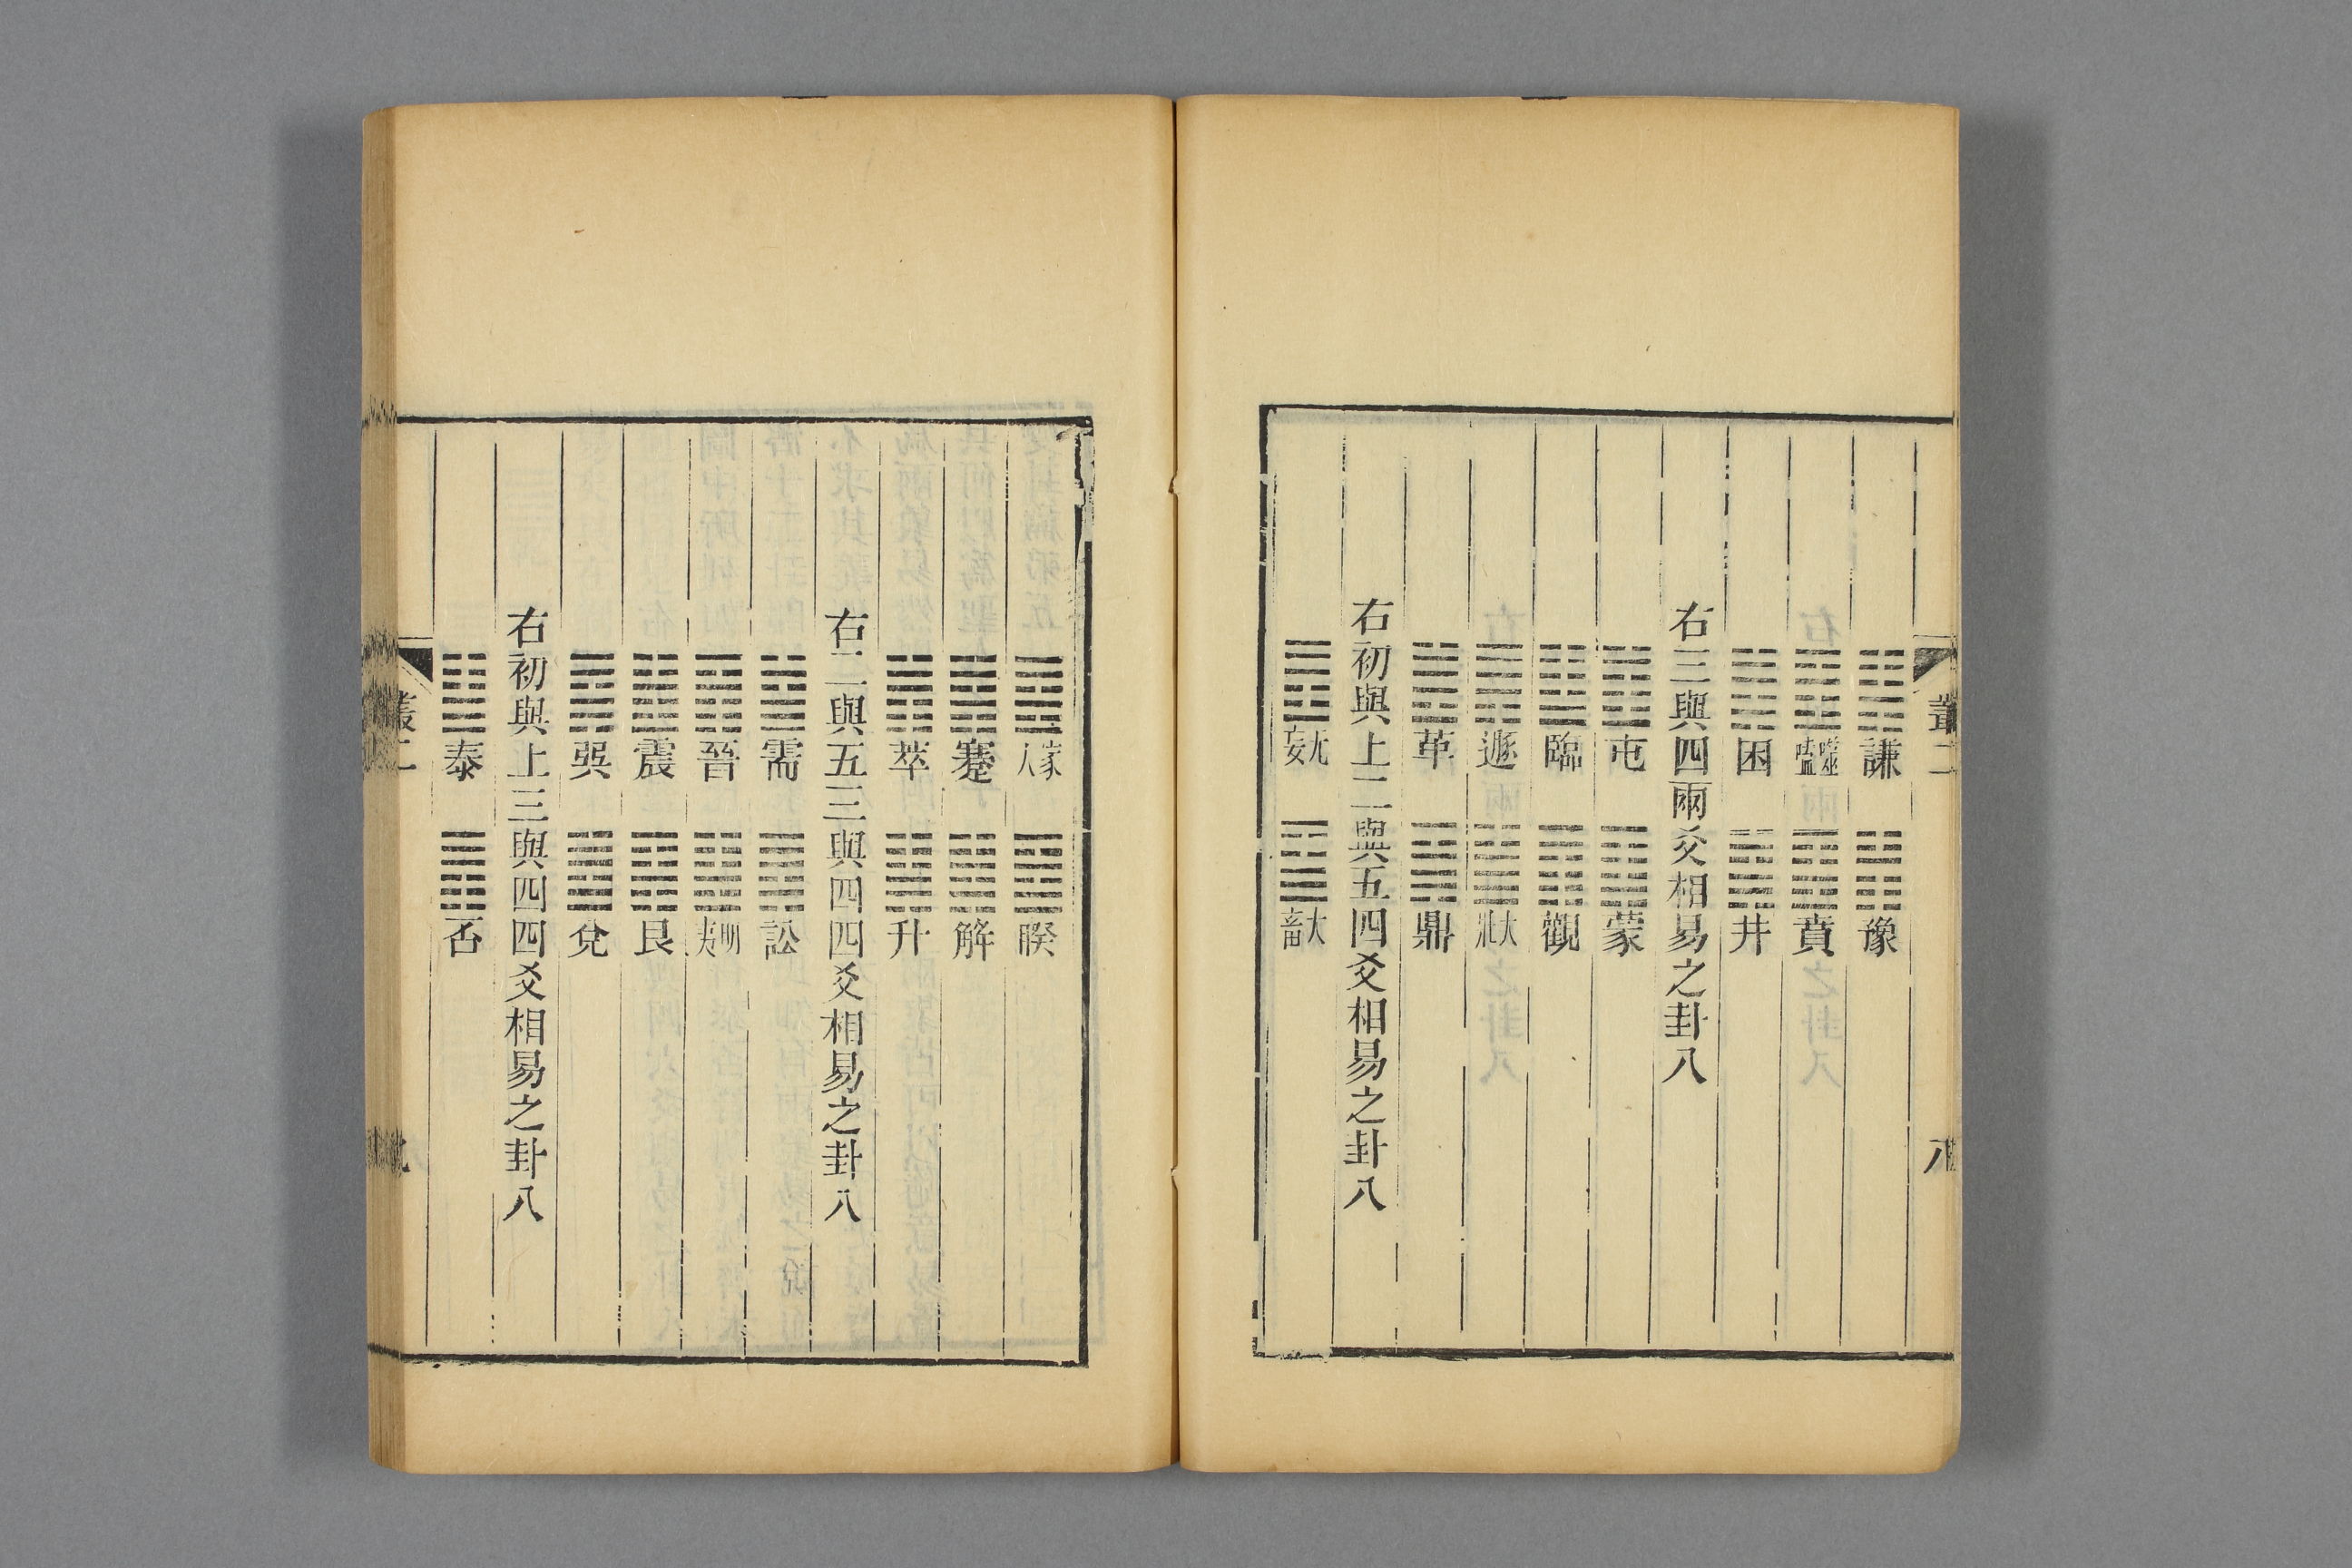 謙 豫
噬嗑 賁
困 井
右三與四兩爻相易之卦八
屯 蒙
臨 觀
遯 大壯
革 鼎
右初與上二與五四爻相易之卦八
无妄 大畜
叢二
八
家人 睽
蹇 解
萃 升
右二與五三與四四爻相易之卦八
需 訟
晉 明夷
震 艮
巽 兌
右初與上三與四四爻相易之卦八
泰 否
叢二